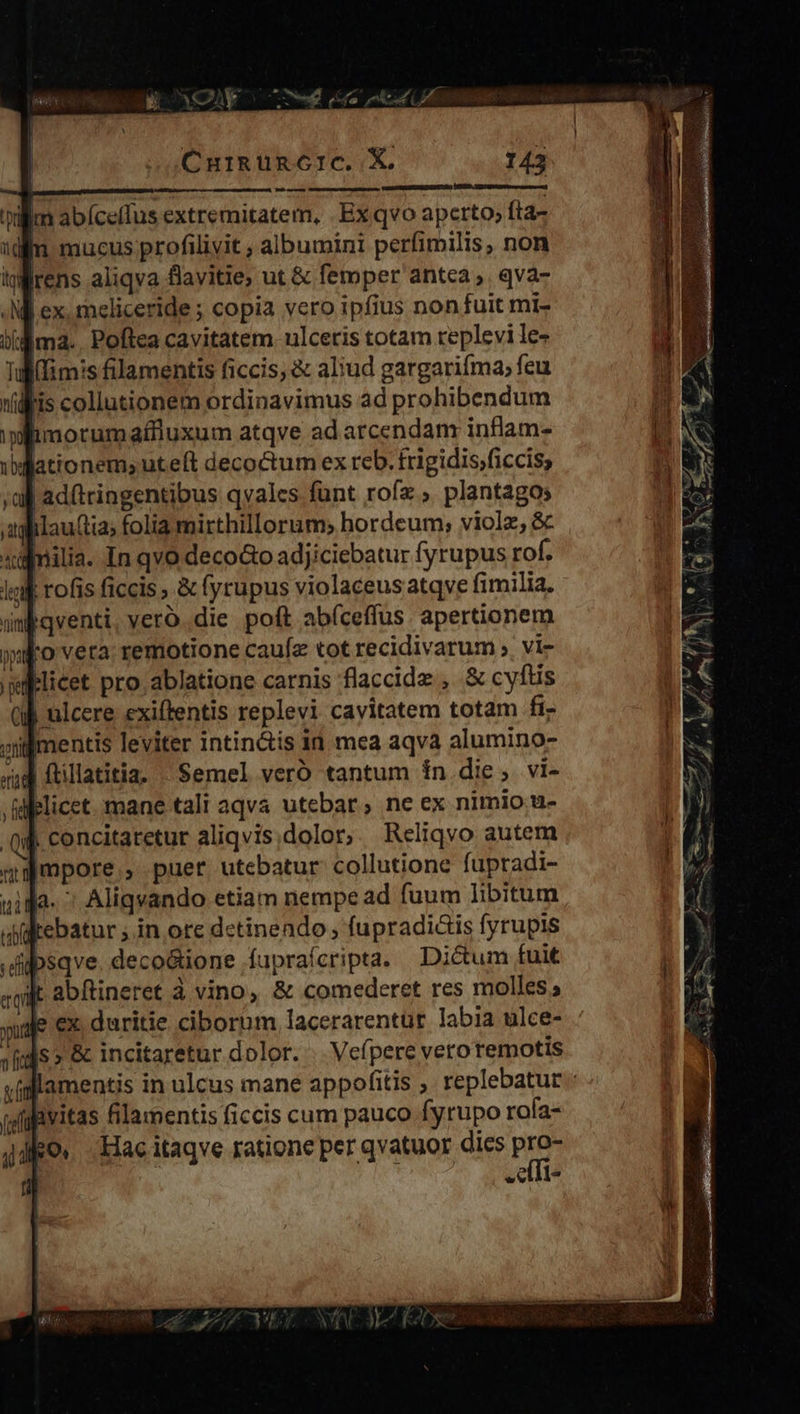 CHIRURGIC. X. 143
abſceſſus extremitatem. Ex qvo aperto, ſta-
mucus profilivit, albumini perſimilis, non
aliqva flavitie, ut & ſemper antea, qva-
ex meliceride; copia vero ipſius non fuit mi-
ma. Poſtea cavitatem ulceris totam replevi le-
ſſimis filamentis ſiccis, & aliud gargariſma, ſeu
is collutionem ordinavimus ad prohibendum
morum affluxum atqve ad arcendam inflam-
ationem, ut eſt decoctum ex reb. frigidis, ſiccis,
adſtringentibus qvales ſunt roſæ, plantago,
lauſtia, folia mirthillorum, hordeum, violæ, &
milia. In qvo decocto adjiciebatur ſyrupus roſ.
roſis ſiccis, & ſyrupus violaceus atqve ſimilia.
qventi verò die poſt abſceſſus apertionem
o vera remotione cauſæ tot recidivarum, vi-
licet pro ablatione carnis flaccidæ, & cyſtis
ulcere exiſtentis replevi cavitatem totam fi-
mentis leviter intinctis in mea aqva alumino-
ſtillatitia. Semel verò tantum in die, vi-
licet mane tali aqva utebar, ne ex nimio u-
concitaretur aliqvis dolor, Reliqvo autem
mpore, puer utebatur collutione ſupradi-
a. Aliqvando etiam nempe ad ſuum libitum
tebatur, in ore detinendo, ſupradictis ſyrupis
psqve decoctione ſupraſcripta. Dictum fuit
t abſtineret à vino, & comederet res molles,
e ex duritie ciborum lacerarentur labia ulce-
s, & incitaretur dolor. Veſpere vero remotis
lamentis in ulcus mane appoſitis, replebatur
avitas filamentis ſiccis cum pauco ſyrupo roſa-
eo, Hac itaqve ratione per qvatuor dies pro-
ceſſi-